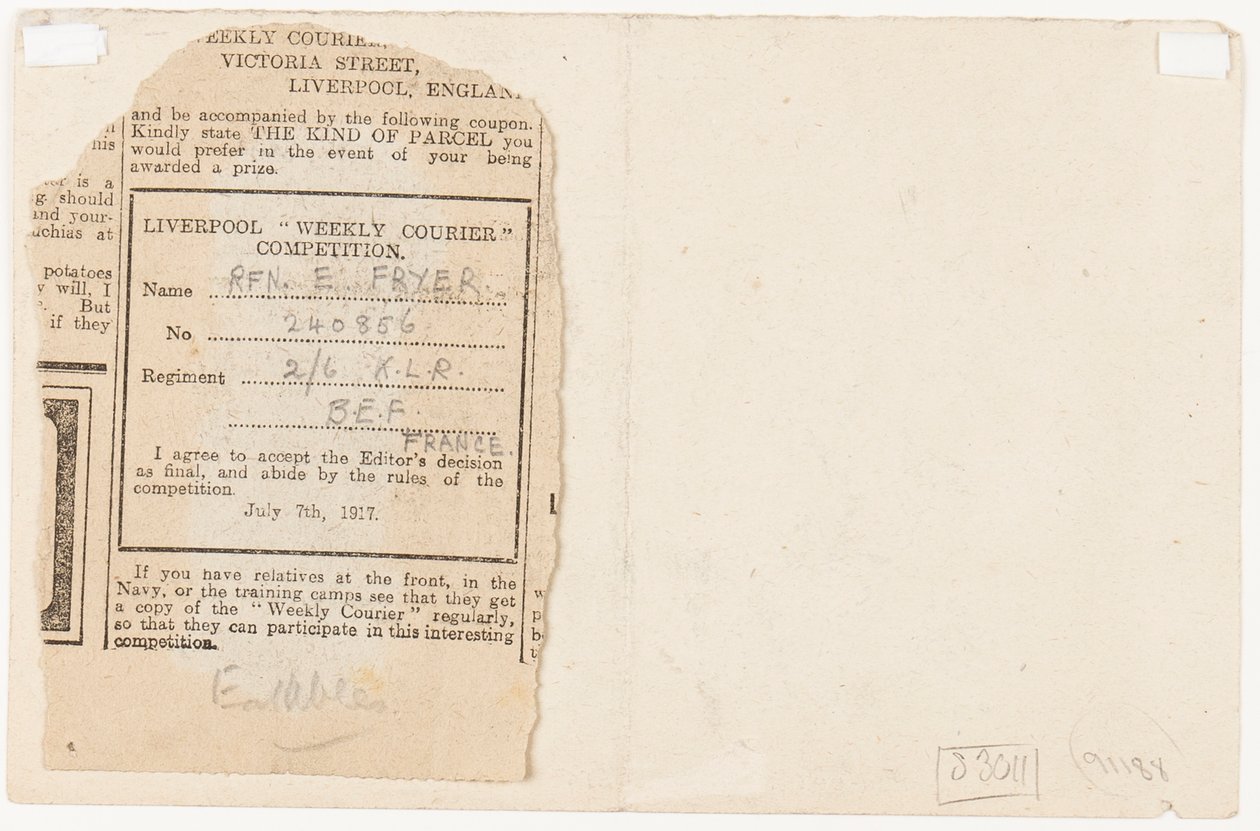 WEEKLY COURIER,
VICTORIA STREET,
LIVERPOOL, ENGLAND
and be accompanied by the following coupon.
Kindly state THE KIND OF PARCEL you
would prefer in the event of your being
awarded a prize.
LIVERPOOL "WEEKLY COURIER"
COMPETITION.
Name RFN. E. FRYER.
No 240856
Regiment 2/6 K.L.R.
B.E.F.
FRANCE.
I agree to accept the Editor's decision
as final, and abide by the rules of the
competition.
July 7th, 1917.
If you have relatives at the front, in the
Navy, or the training camps see that they get
a copy of the "Weekly Courier" regularly,
so that they can participate in this interesting
competition.
Eatables
his
is a
should
and your-
at
potatoes
will, I
But
if they
S 3011
91188